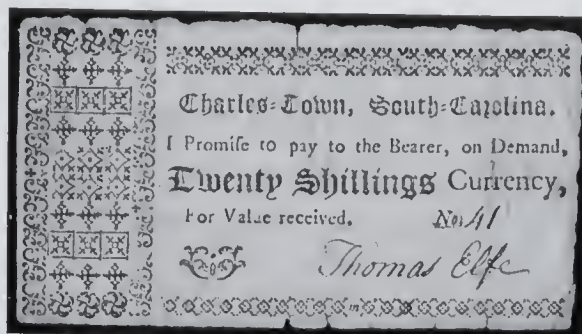 Charles=Town, South=Carolina.
I Promiſe to pay to the Bearer, on Demand,
Twenty Shillings Currency,
For Value received. No. 41
Thomas Elfe